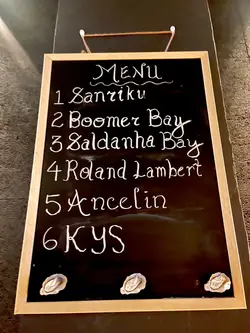 MENU
1 Sanriku
2 Boomer Bay
3 Saldanha Bay
4 Roland Lambert
5 Ancelin
6 KYS